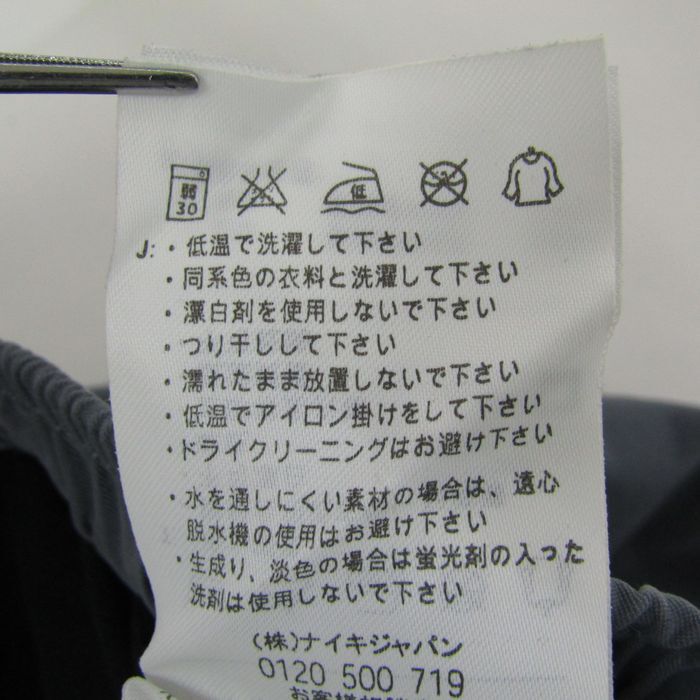 弱
30
低
J: ・低温で洗濯して下さい
・同系色の衣料と洗濯して下さい
・漂白剤を使用しないで下さい
・つり干しして下さい
・濡れたまま放置しないで下さい
・低温でアイロン掛けをして下さい
・ドライクリーニングはお避け下さい
・水を通しにくい素材の場合は、遠心
脱水機の使用はお避け下さい
・生成り、淡色の場合は蛍光剤の入った
洗剤は使用しないで下さい
(株)ナイキジャパン
0120 500 719
お客様相談